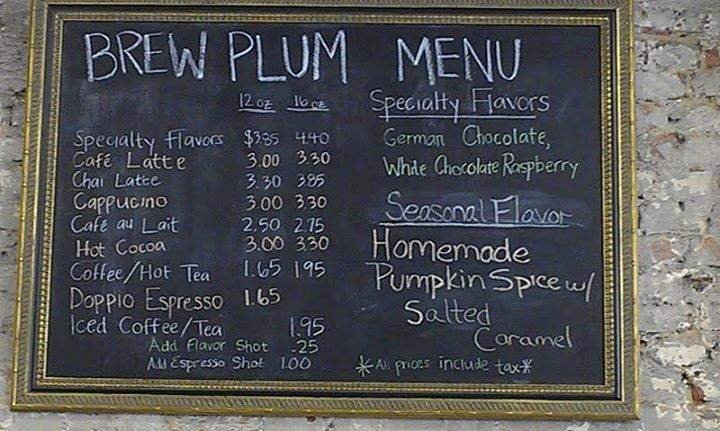 BREW PLUM MENU
12 oz 16 oz
Specialty Flavors $3.85 4.40
Café Latte 3.00 3.30
Chai Latte 3.30 3.85
Cappucino 3.00 3.30
Café au Lait 2.50 2.75
Hot Cocoa 3.00 3.30
Coffee/Hot Tea 1.65 1.95
Doppio Espresso 1.65
Iced Coffee/Tea 1.95
Add Flavor Shot .25
Add Espresso Shot 1.00
Specialty Flavors
German Chocolate,
White Chocolate Raspberry
Seasonal Flavor
Homemade
Pumpkin Spice w/
Salted
Caramel
*All prices include tax*